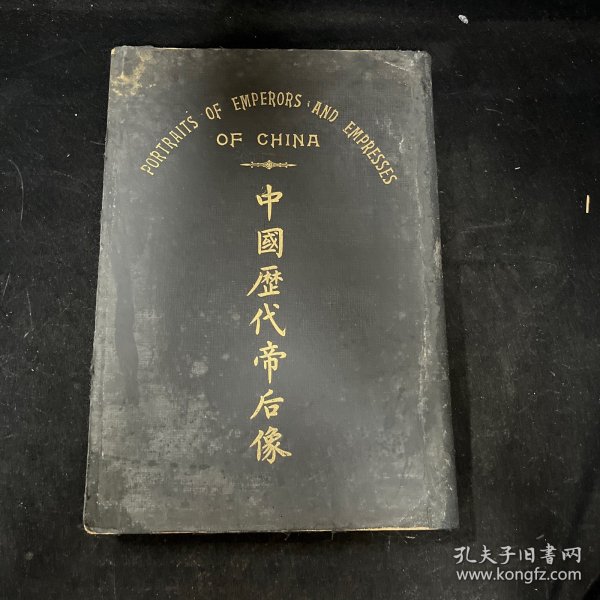 PORTRAITS OF EMPERORS AND EMPRESSES
OF CHINA
中國歷代帝后像
孔夫子旧書网
www.kongfz.com